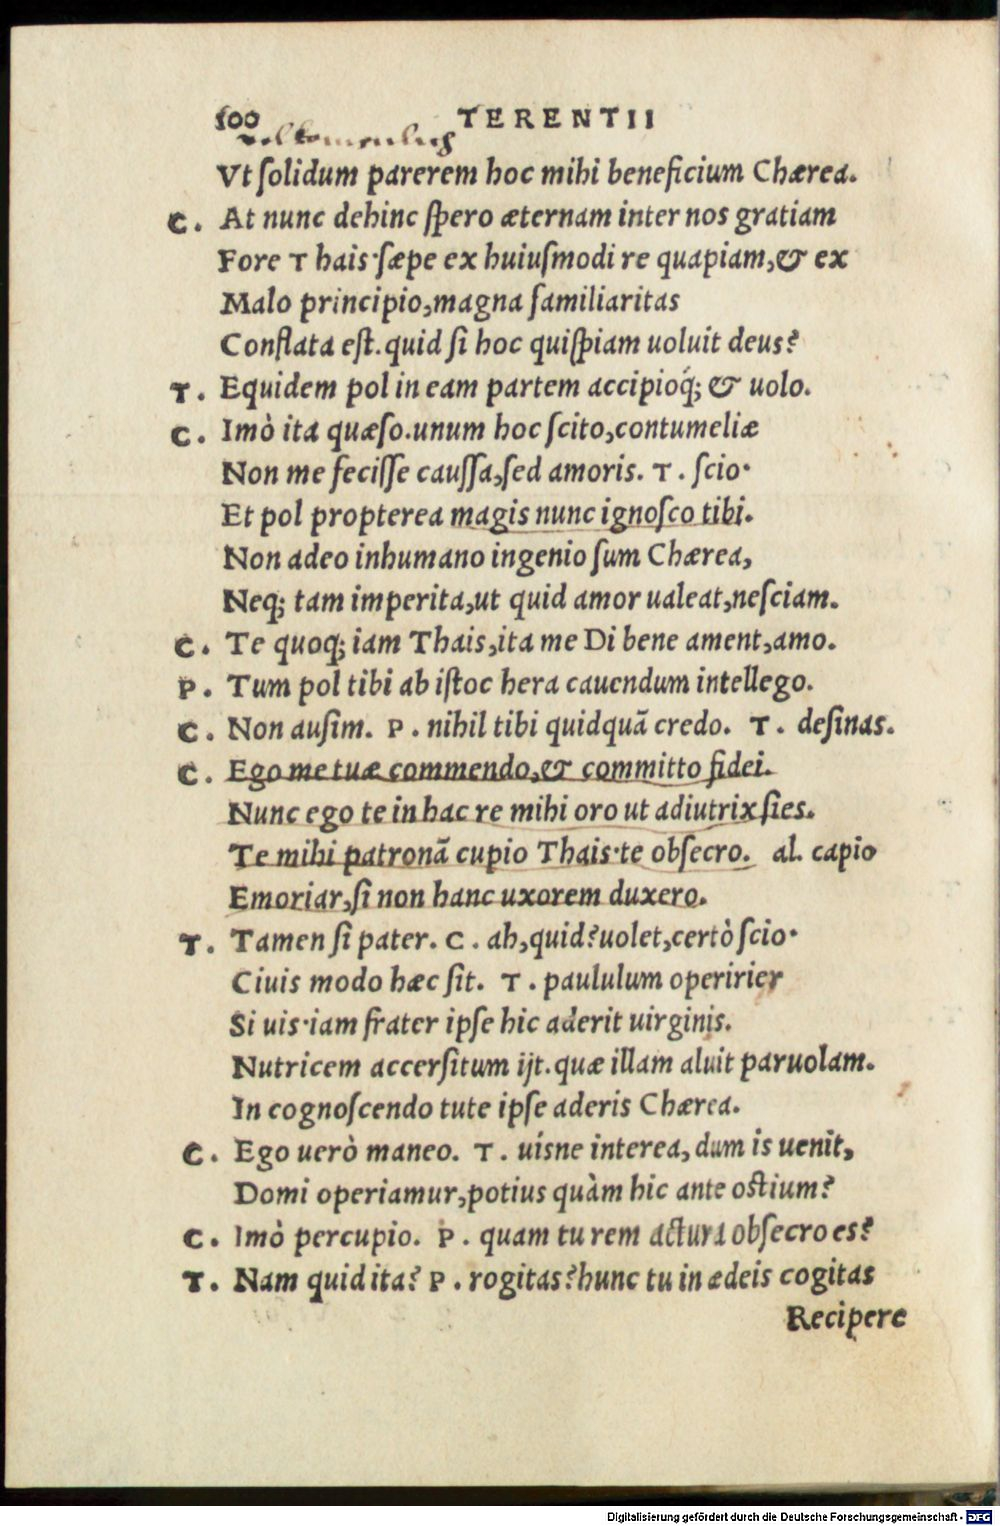 100 TERENTII
Vt ſolidum parerem hoc mihi beneficium Chærea.
C. At nunc dehinc ſpero æternam inter nos gratiam
Fore Thais·ſæpe ex huiuſmodi re quapiam,& ex
Malo principio,magna familiaritas
Conflata eſt.quid ſi hoc quiſpiam uoluit deus?
T. Equidem pol in eam partem accipioq́;& uolo.
C. Imò ita quæſo.unum hoc ſcito,contumeliæ
Non me feciſſe cauſſa,ſed amoris. T. ſcio·
Et pol propterea magis nunc ignoſco tibi.
Non adeo inhumano ingenio ſum Chærea,
Neq; tam imperita,ut quid amor ualeat,neſciam.
C. Te quoq; iam Thais,ita me Di bene ament,amo.
P. Tum pol tibi ab iſtoc hera cauendum intellego.
C. Non auſim. P. nihil tibi quidquã credo. T. deſinas.
C. Ego me tuæ commendo,& committo fidei.
Nunc ego te in hac re mihi oro ut adiutrix ſies.
Te mihi patronã cupio Thais·te obſecro. al. capio
Emoriar,ſi non hanc uxorem duxero.
T. Tamen ſi pater. C. ah,quid?uolet,certò ſcio·
Ciuis modo hæc ſit. T. paululum operirier
Si uis·iam frater ipſe hic aderit uirginis.
Nutricem accerſitum ijt.quæ illam aluit paruolam.
In cognoſcendo tute ipſe aderis Chærea.
C. Ego uerò maneo. T. uisne interea,dum is uenit,
Domi operiamur,potius quàm hic ante oſtium?
C. Imò percupio. P. quam tu rem actura obſecro es?
T. Nam quid ita? P. rogitas?hunc tu in ædeis cogitas
Recipere
Digitalisierung gefördert durch die Deutsche Forschungsgemeinschaft - DFG